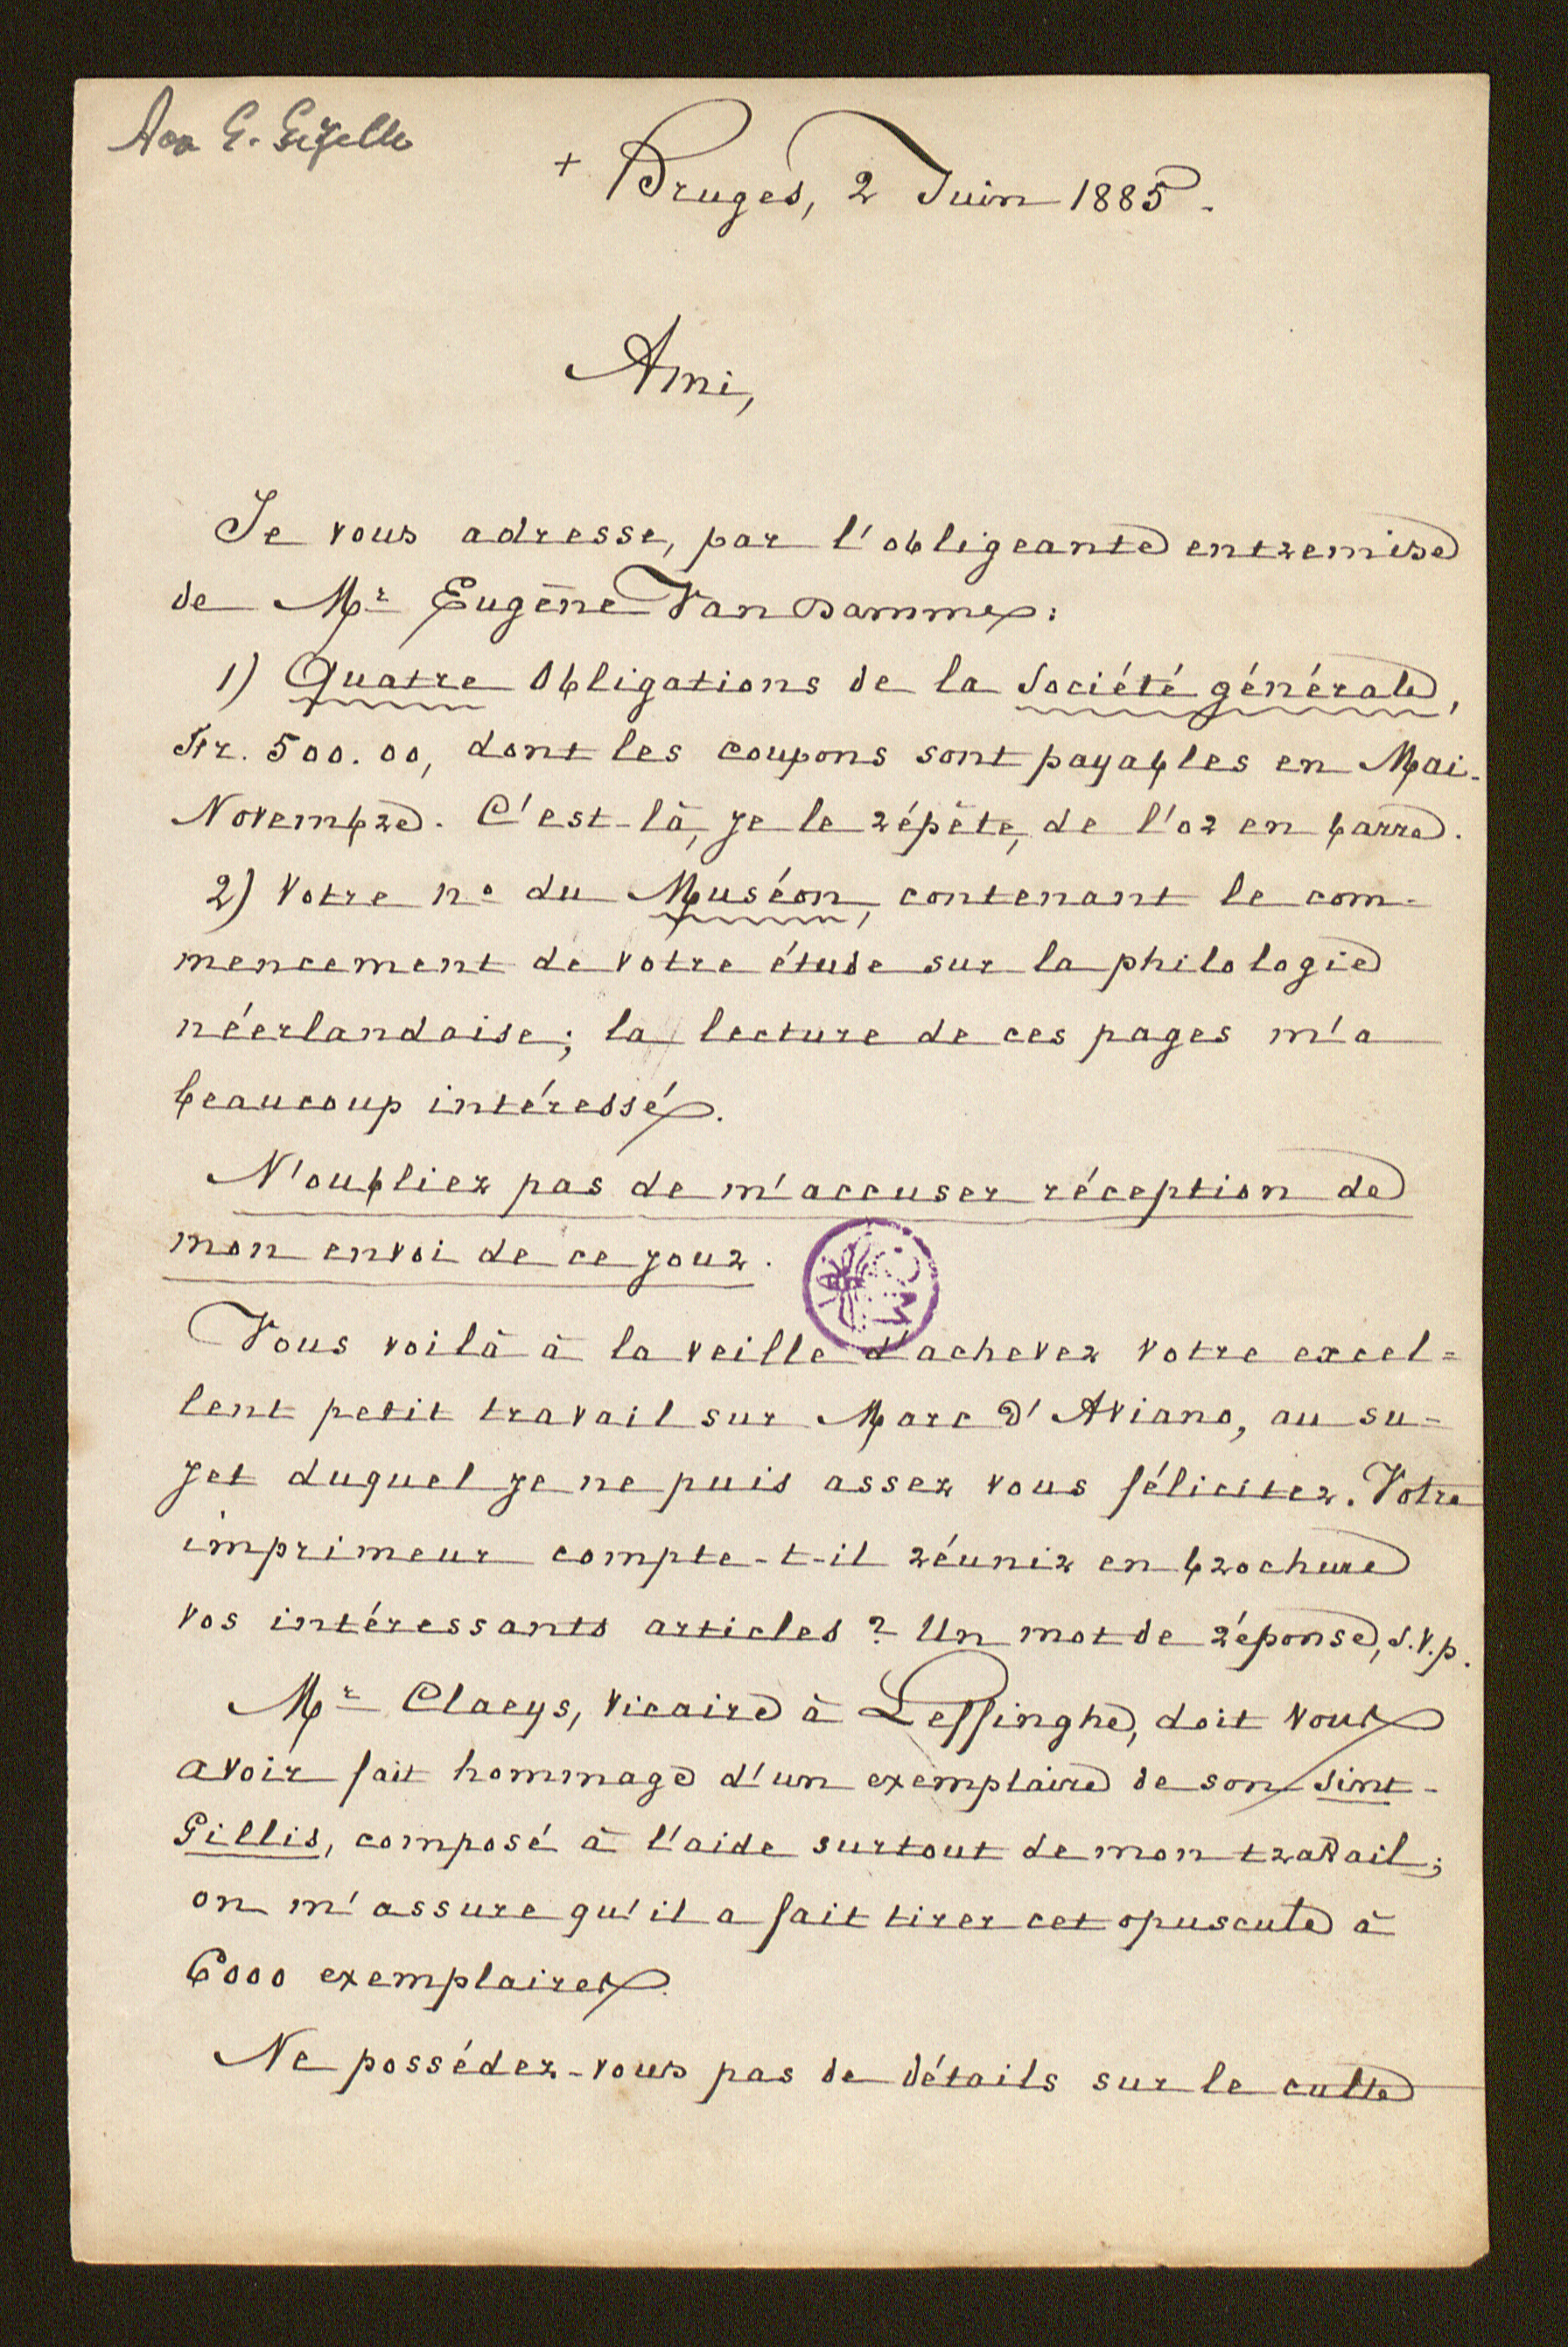 Aan G. Gezelle
+ Bruges, 2 Juin 1885.
Ami,
Je vous adresse, par l'obligeante entremise
de Mr Eugène Van Damme:
1) Quatre Obligations de la Société générale,
Fr. 500.00, dont les coupons sont payables en Mai-
Novembre. C'est là, je le répète, de l'or en barre.
2) Votre no du Muséon, contenant le com-
mencement de votre étude sur la philologie
néerlandaise; la lecture de ces pages m'a
beaucoup intéressé.
N'oubliez pas de m'accuser réception de
mon envoi de ce jour.
Vous voilà à la veille d'achever votre excel=
lent petit travail sur Marc d'Aviano, au su-
jet duquel je ne puis assez vous féliciter. Votre
imprimeur compte-t-il réunir en brochure
vos intéressants articles? Un mot de réponse, s.v.p.
Mr Claeys, vicaire à Leffinghe, doit vous
avoir fait hommage d'un exemplaire de son Sint-
Gillis, composé à l'aide surtout de mon travail;
on m'assure qu'il a fait tirer cet opuscule à
6000 exemplaires.
Ne possédez-vous pas de détails sur le culte